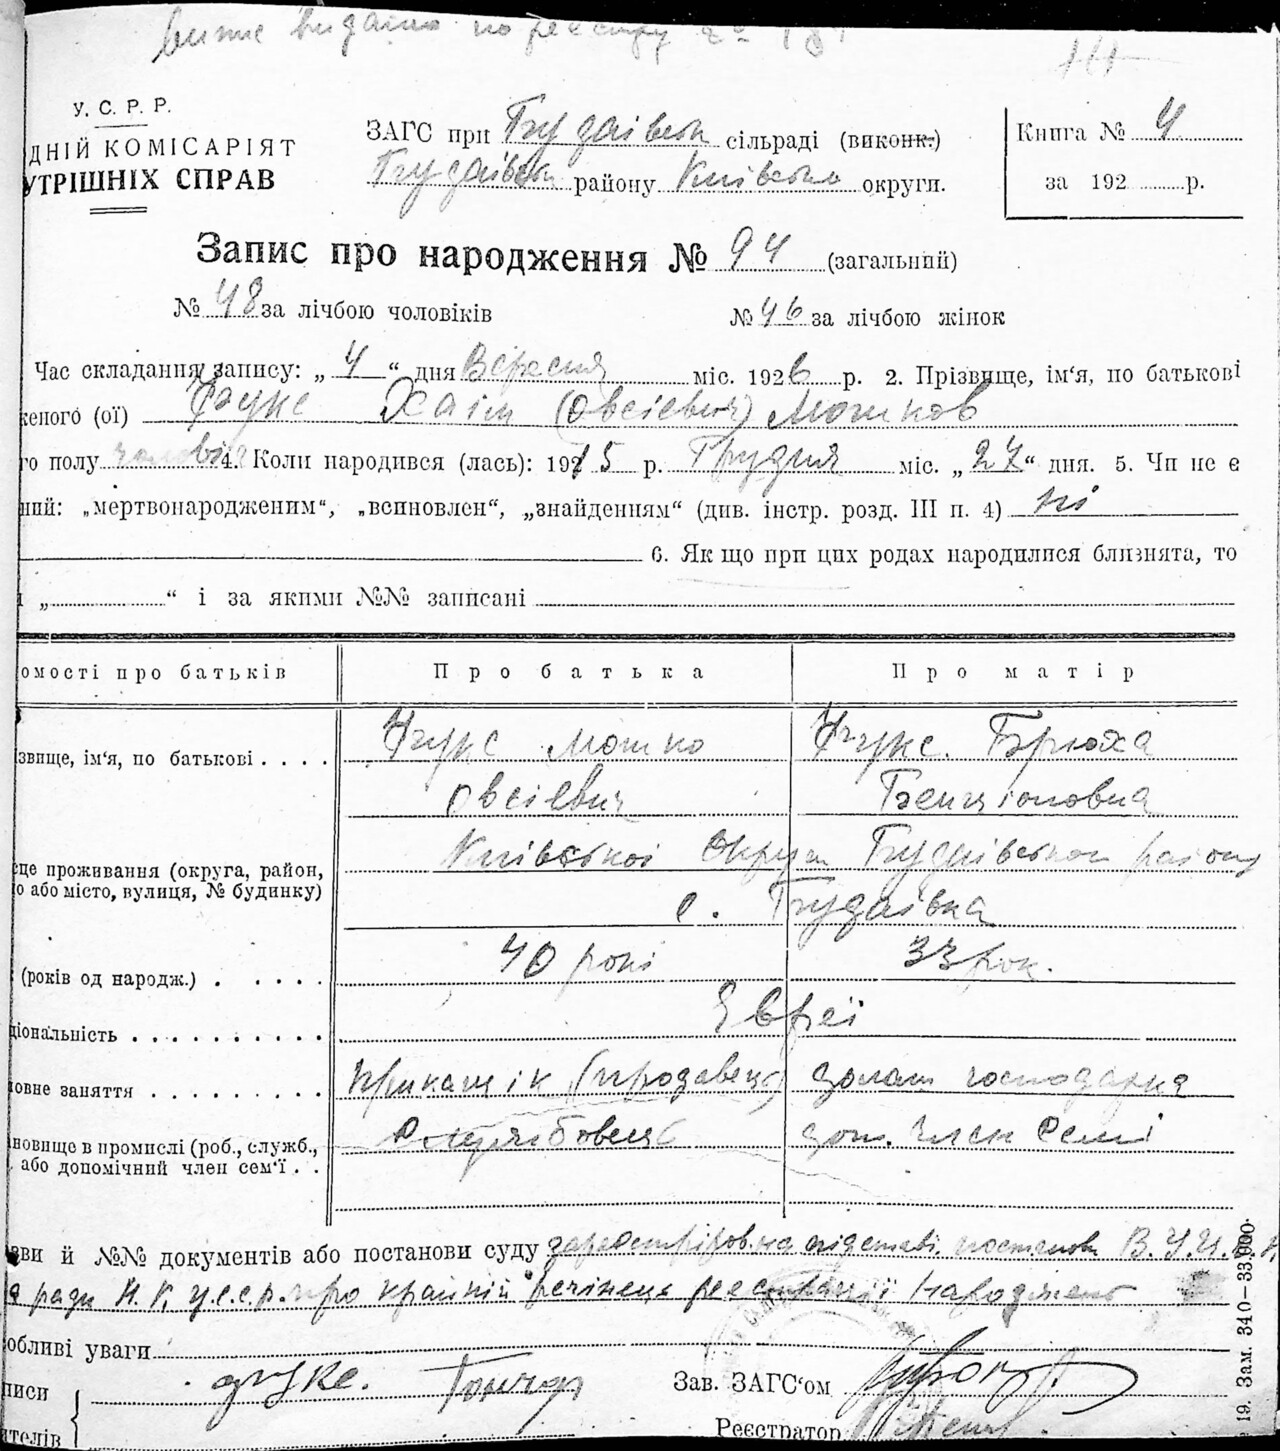 витяг видано по реєстру
У. С. Р. Р.
ДНІЙ КОМІСАРІЯТ
УТРІШНІХ СПРАВ
ЗАГС при Будаївськ сільраді (виконк.)
Будаївськ району Київсько округи.
Книга № 4
за 192 р.
Запис про народження № 94 (загальний)
№ 48 за лічбою чоловіків
№ 46 за лічбою жінок
Час складання запису: „ 4 “ дня Вересня міс. 1926 р. 2. Прізвище, ім‘я, по батькові
женого (ої) Фукс Хаім (Овсієвич) Мошков
го полу чоловіч 4. Коли народився (лась): 1915 р. Грудня міс. „ 27 “ дня. 5. Чи не є
ний: „мертвонародженим“, „всиновлен“, „знайденням“ (див. інстр. розд. III п. 4) ні
6. Як що при цих родах народилися близнята, то
і „ “ і за якими №№ записані
омості про батьків
Про батька
Про матір
звище, ім‘я, по батькові . . . .
Фукс Мошко
Фукс. Брюха
Овсієвич
Бенціоновна
це проживання (округа, район,
о або місто, вулиця, № будинку)
Київської Округи Будаївського району
с. Будаївка
(років од народж.) . . . . .
40 рокі
33 рок.
ціональність . . . . . . . . . .
Євреї
овне заняття . . . . . . . . .
Прикащік (продавець)
домаш господарка
новище в промислі (роб., служб.,
або допомічний член сем‘ї . .
Службовець
доп. член семі
зви й №№ документів або постанови суду зареєстріров. на підставі постанов В.У.Ц.В.К
а ради Н. К. У.С.С.Р. про крайній речінець реєстрації народжень
обливі уваги
писи
ателів
Фукс. Гончар
Зав. ЗАГС‘ом
Реєстратор
19. Зам. 340—33.000.